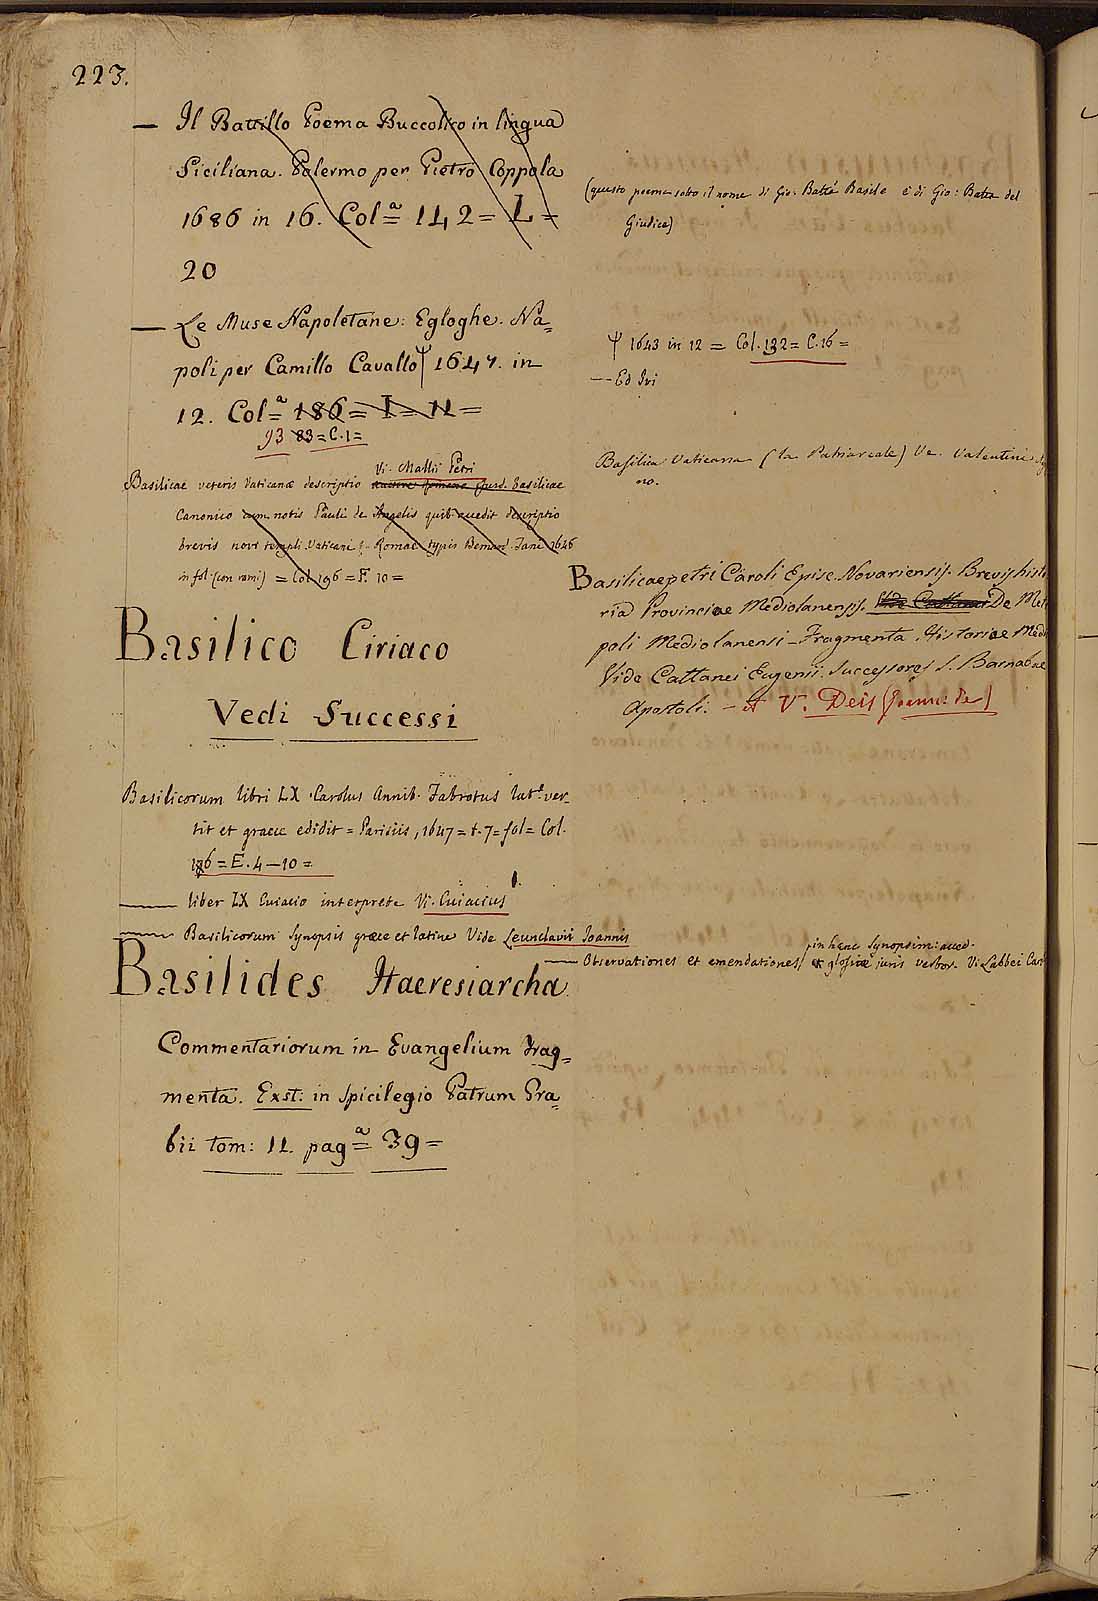 223.
— Il Battillo Poema Buccolico in lingua
Siciliana. Palermo per Pietro Coppola
1686 in 16. Col.a 142 = L =
20
(questo poema sotto il nome di Gio. Batta Basile è di Gio: Batta del
Giudice)
— Le Muse Napoletane: Egloghe. Na=
poli per Camillo Cavallo Ψ 1647. in
12. Col.a 186 = I = 11 =
93 83 = C. 1 =
Ψ 1643 in 12 = Col. 132 = C. 16 =
— Ed Ivi
Vi. Mallii Petri
Basilicae veteris Vaticanæ descriptio auctore Romano ejusd. Basilicae
Canonico cum notis Pauli de Angelis quib. accedit descriptio
brevis novi templi Vaticani &. Romae typis Bernard. Tani 1646
in fol. (con rami) = Col. 196 = F. 10 =
Basilica Vaticana (la Patriarcale) Ve. Valentini
no.
Basilicaepetri Caroli Episc. Novariensis. Brevis histo
ria Provinciae Mediolanensis. Vide Cattanei De Met
poli Mediolanensi — Fragmenta Historiae Medi
Vide Cattanei Eugenii. Successores S. Barnabae
Apostoli. — et V. Deis (Joann: de)
Basilico Ciriaco
Vedi Successi
Basilicorum libri LX. Carolus Annib. Fabrotus lat.e ver_
tit et graece edidit = Parisiis, 1647 = t. 7 = fol = Col.
186 = E. 4 — 10 =
— liber LX Cuiacio interprete Vi. Cuiacius
— Basilicorum Synopsis græce et latine Vide Leunclavii Joannis
— Observationes et emendationes, in hanc Synopsim: acced. et glossae juris verbor. Vi Labbei Car
Basilides Haeresiarcha
Commentariorum in Evangelium Frag=
menta. Exst: in Spicilegio Patrum Gra
bii tom: 11. pag.a 39 =